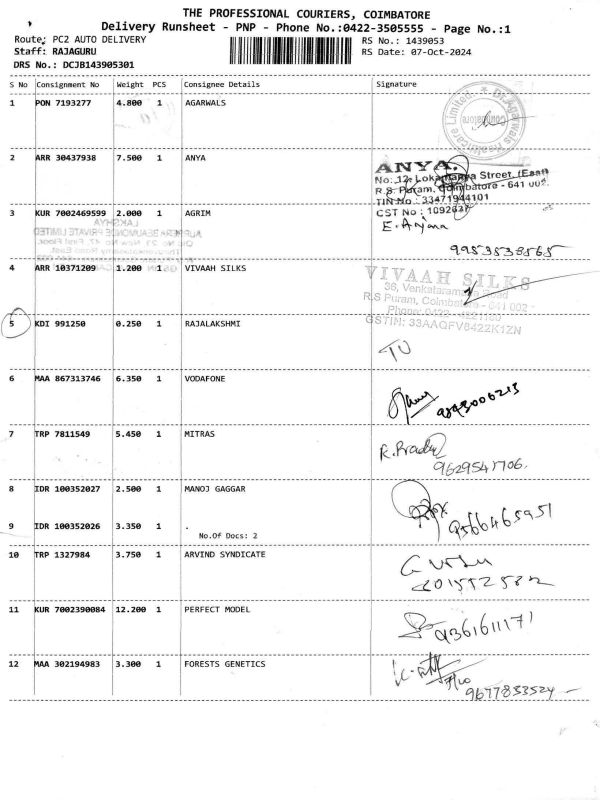 THE PROFESSIONAL COURIERS, COIMBATORE
Delivery Runsheet - PNP - Phone No.:0422-3505555 - Page No.:1
Route: PC2 AUTO DELIVERY
RS No.: 1439053
Staff: RAJAGURU
RS Date: 07-Oct-2024
DRS No.: DCJB143905301
S No Consignment No Weight PCS Consignee Details Signature
1 PON 7193277 4.800 1 AGARWALS
Dr.Agarwals Healthcare Limited.
Coimbatore
2 ARR 30437938 7.500 1 ANYA
ANYA.
No: 12, Lokamanya Street, (East)
R.S. Puram, Coimbatore - 641 002.
TIN No : 33471944101
3 KUR 7002469599 2.000 1 AGRIM
CST No : 1092637
E. Anjana
9953538565
4 ARR 10371209 1.200 1 VIVAAH SILKS
VIVAAH SILKS
36, Venkataramana Road
R.S Puram, Coimbatore - 641 002
GSTIN: 33AAQFV8422K1ZN
5 KDI 991250 0.250 1 RAJALAKSHMI
6 MAA 867313746 6.350 1 VODAFONE
7 TRP 7811549 5.450 1 MITRAS
9629541706.
8 IDR 100352027 2.500 1 MANOJ GAGGAR
9566465951
9 IDR 100352026 3.350 1 .
No.Of Docs: 2
10 TRP 1327984 3.750 1 ARVIND SYNDICATE
11 KUR 7002390084 12.200 1 PERFECT MODEL
9361611171
12 MAA 302194983 3.300 1 FORESTS GENETICS
9677833524